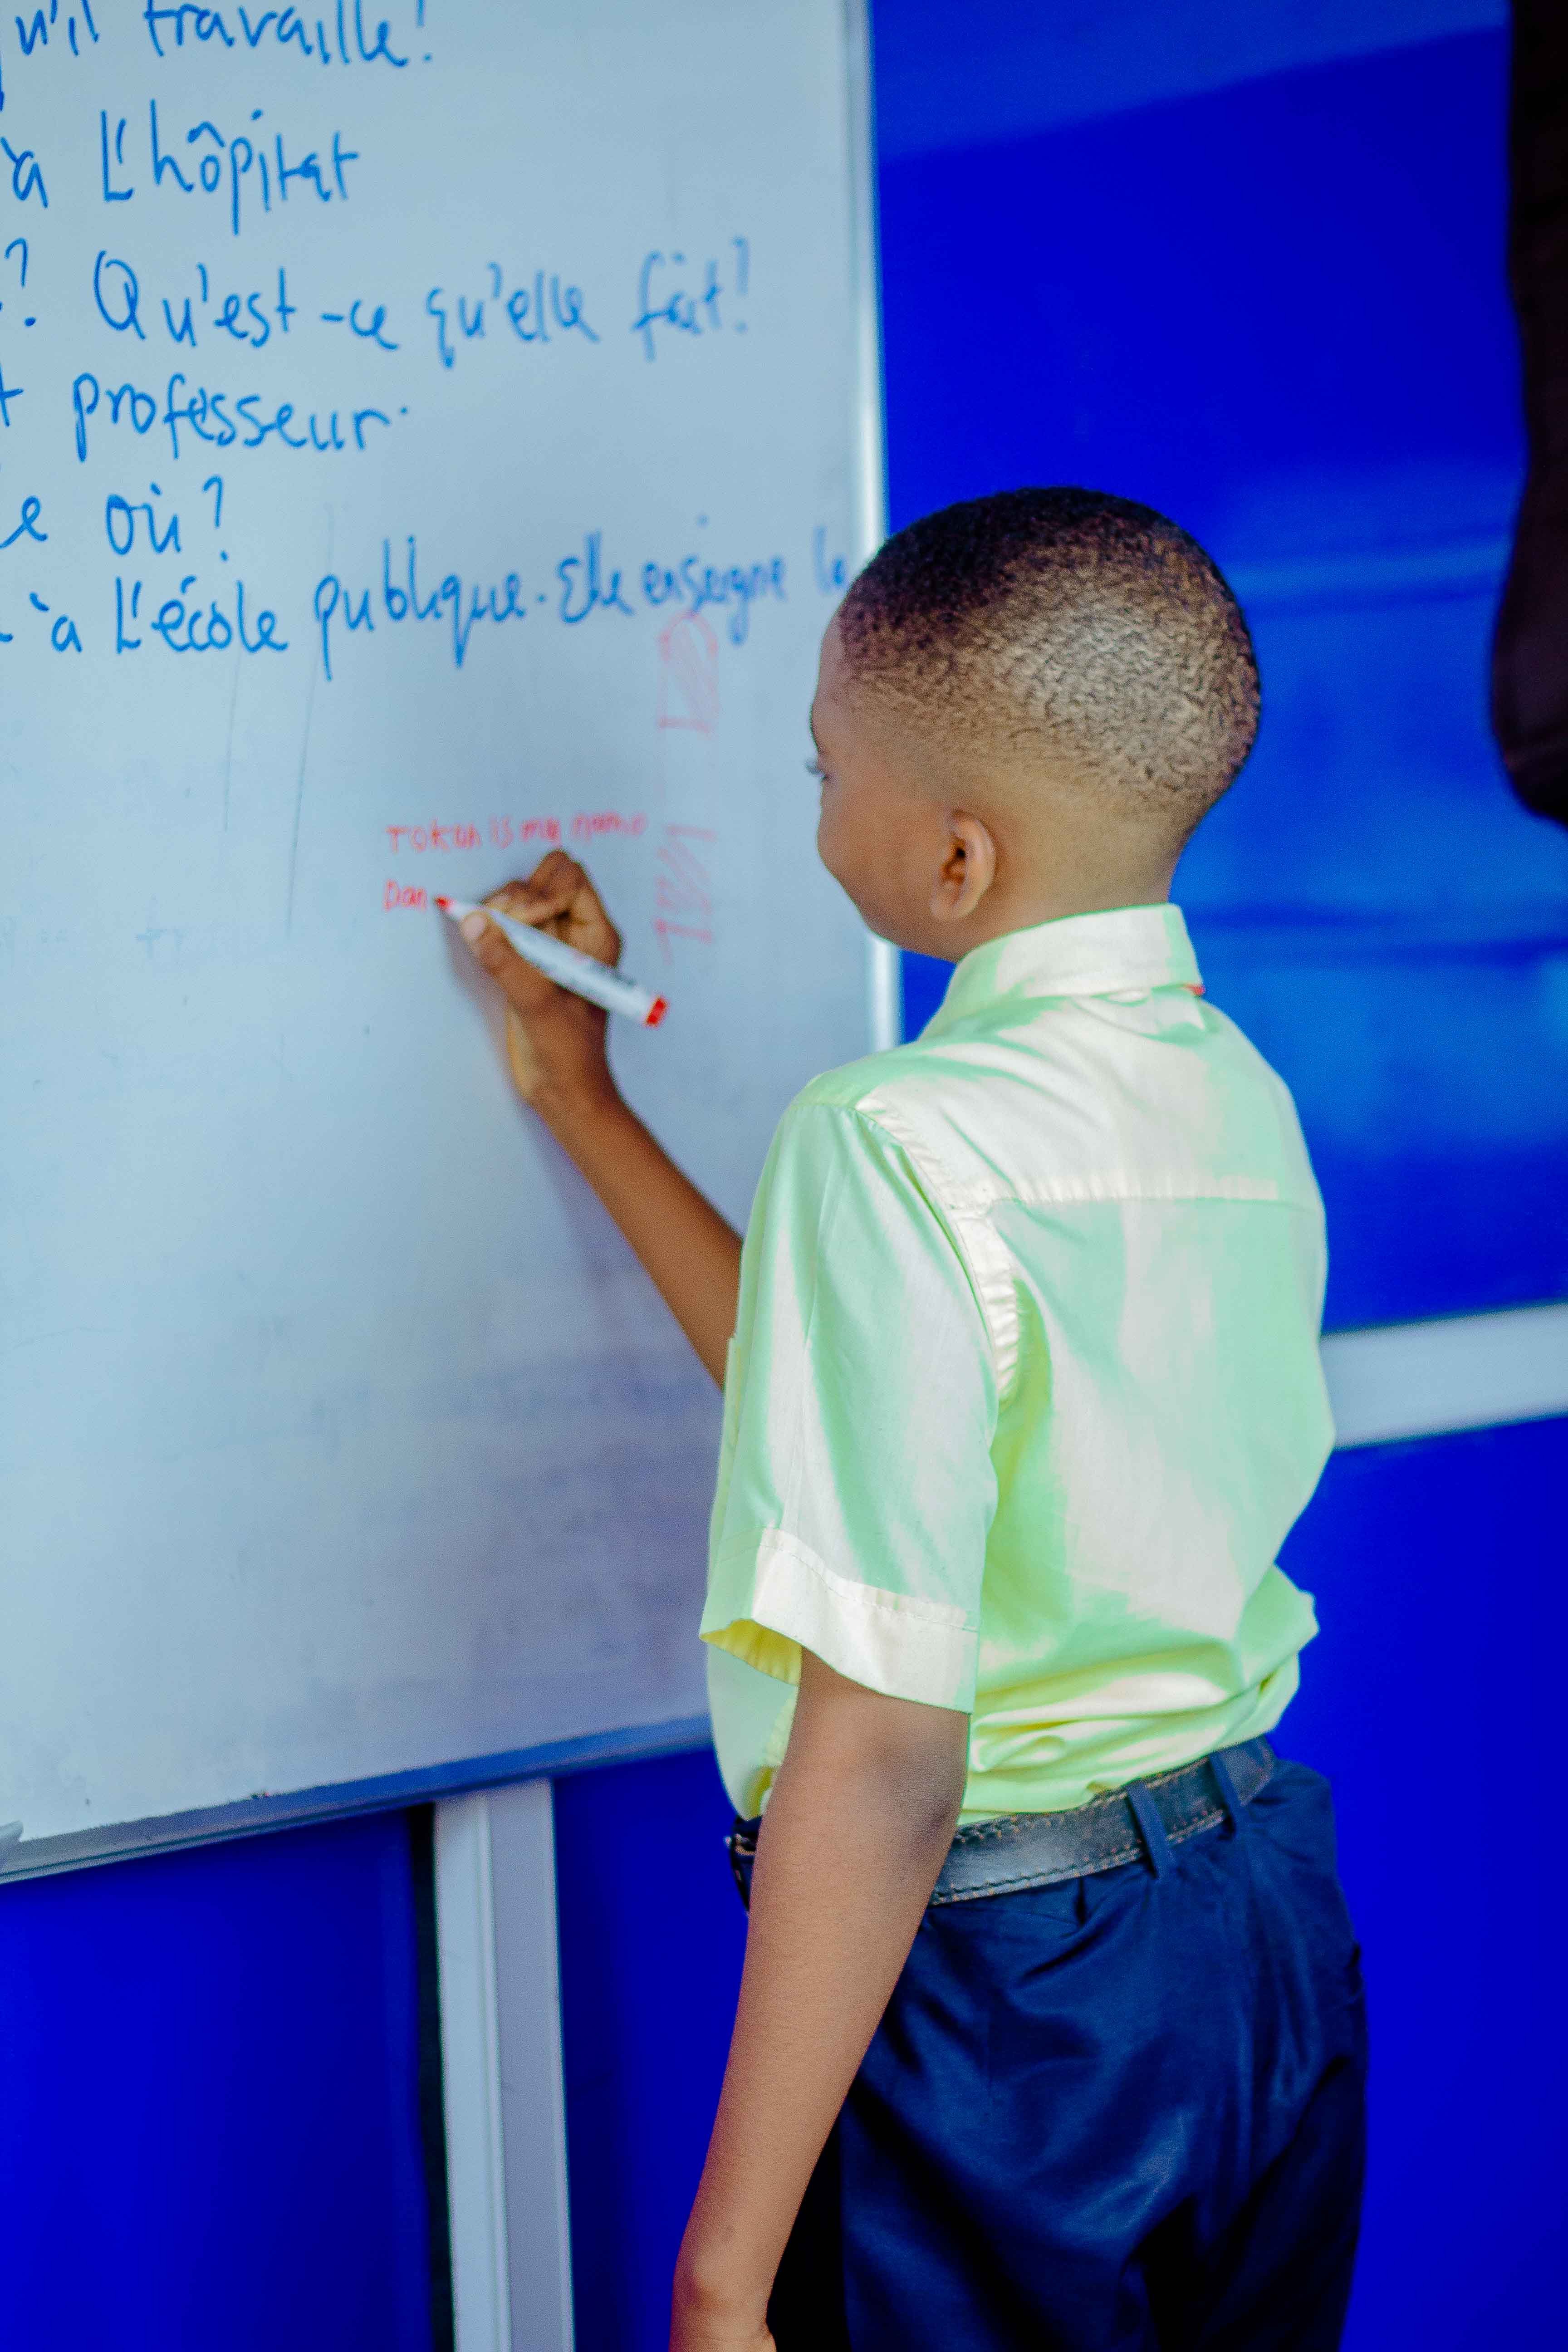 qu'il travaille?
à L'hôpital
? Qu'est-ce qu'elle fait?
professeur.
où?
à L'école publique. Elle enseigne le
is my name
Dan